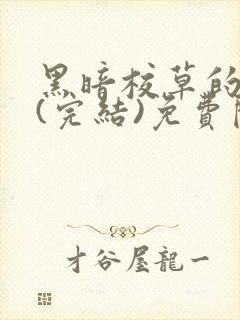 黑暗校草的
(完結)免費
才谷屋龍一